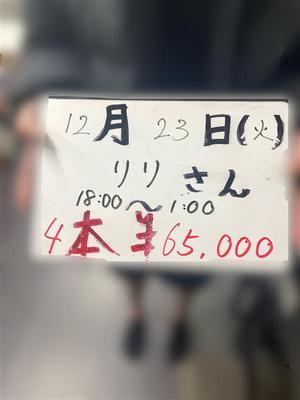 12月 23日(火)
リリ さん
18:00〜1:00
4本 ¥65,000